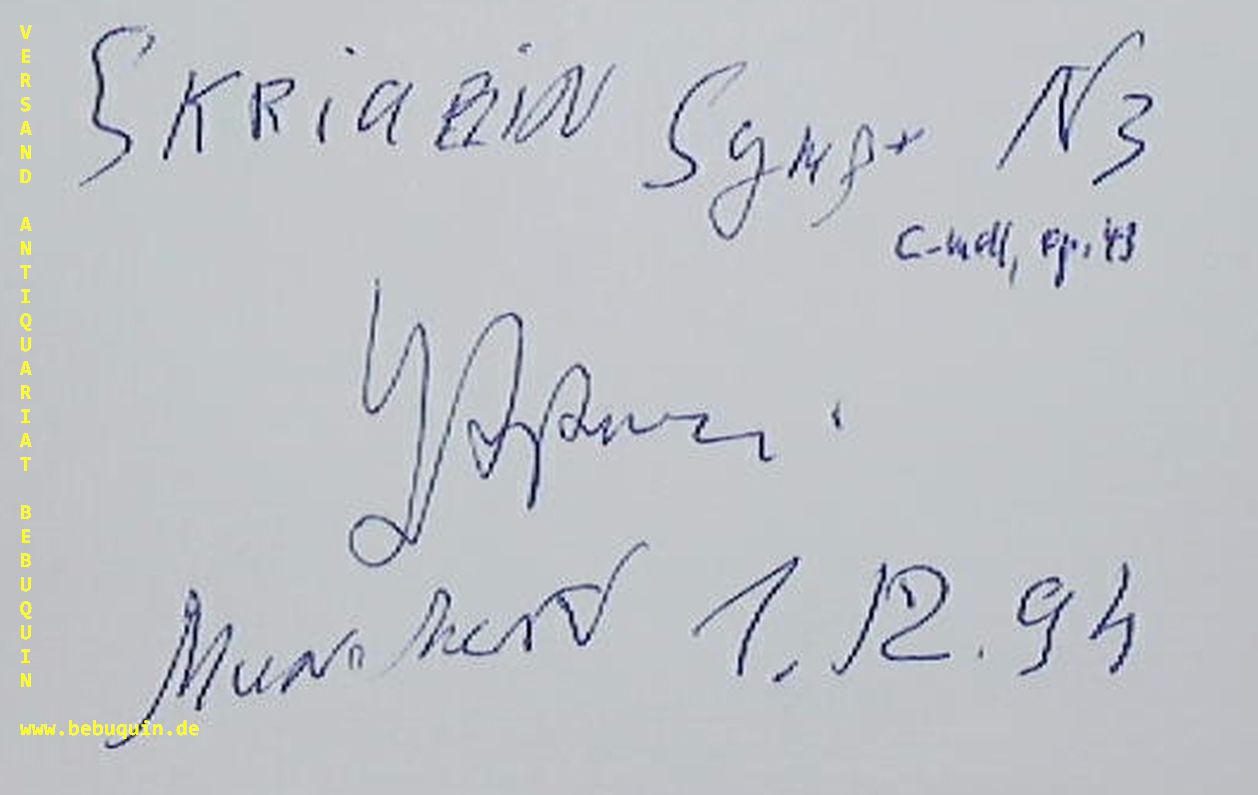 SKRiaBIN Symp. N3
C-moll, op. 43
München 1.12.94
VERSAND ANTIQUARIAT BEBUQUIN
www.bebuquin.de